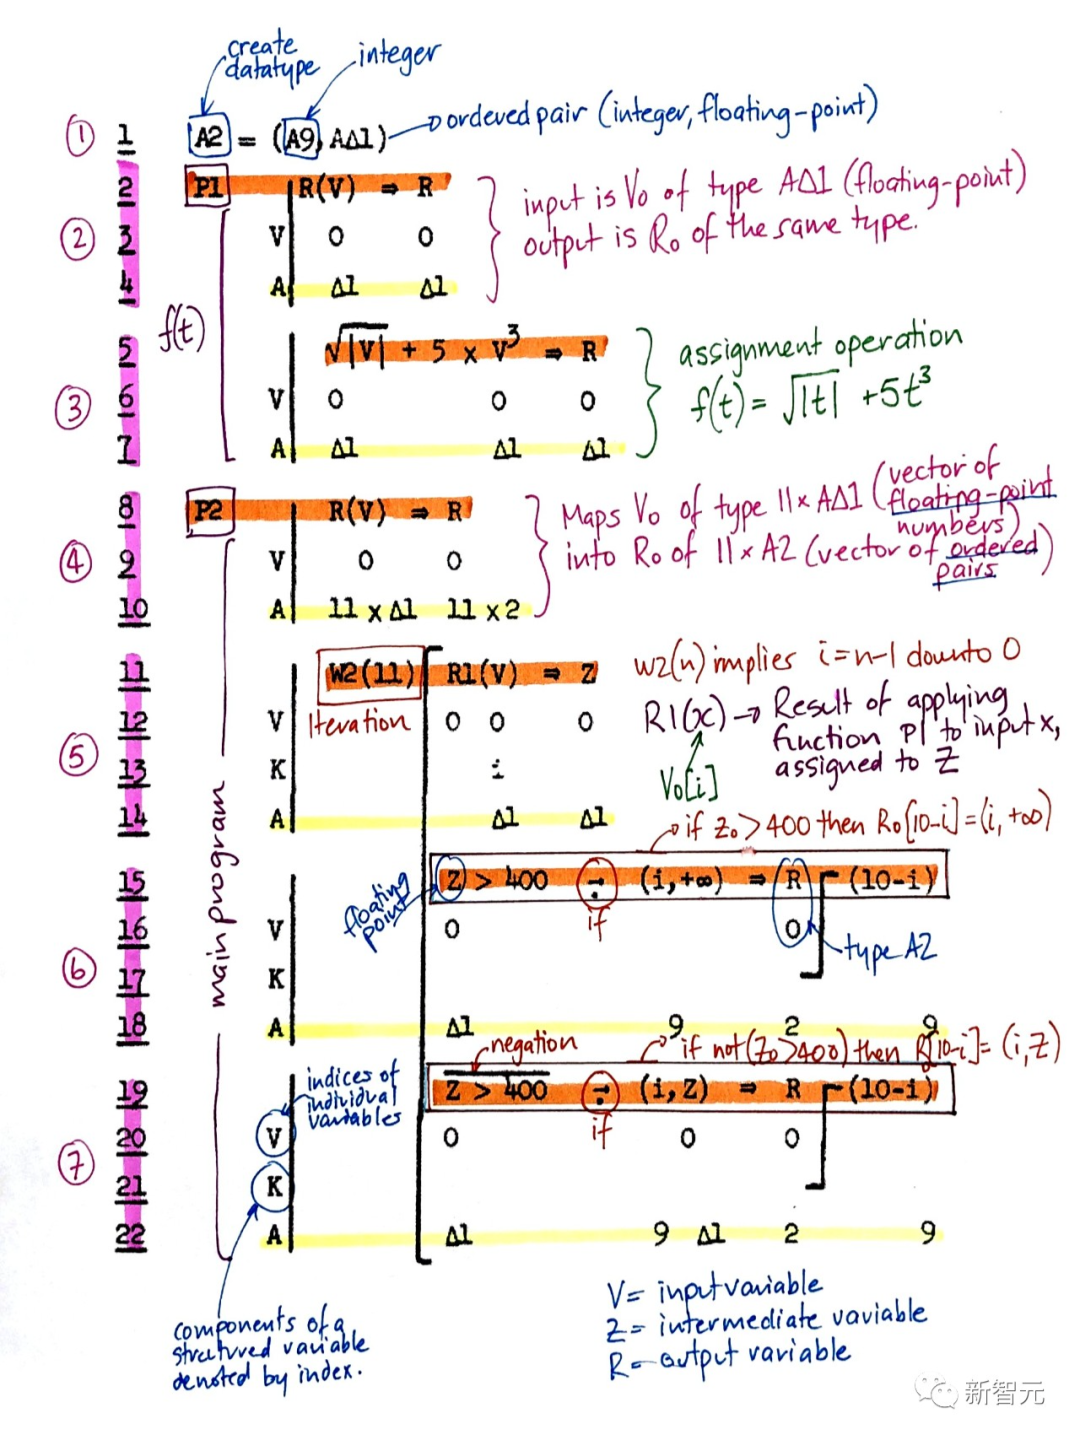 create
datatype
integer
① 1 A2 = (A9, AΔ1) ordered pair (integer, floating-point)
2 P1 R(V) ⇒ R
② 3 V 0 0
4 A Δ1 Δ1
input is V0 of type AΔ1 (floating-point)
output is R0 of the same type.
f(t)
5 √|V| + 5 × V³ ⇒ R
③ 6 V 0 0 0
7 A Δ1 Δ1 Δ1
assignment operation
f(t) = √|t| + 5t³
8 P2 R(V) ⇒ R
④ 9 V 0 0
10 A 11 x Δ1 11 x 2
Maps V0 of type 11 x AΔ1 (vector of
floating-point
numbers)
into R0 of 11 x A2 (vector of ordered
pairs)
main program
11 W2(11) R1(V) ⇒ Z
12 V Iteration 0 0 0
⑤ 13 K i
14 A Δ1 Δ1
W2(n) implies i = n-1 downto 0
R1(x) → Result of applying
function P1 to input x,
assigned to Z
V0[i]
if Z0 > 400 then R0[10-i] = (i, +∞)
15 Z > 400 →̣ (i,+∞) ⇒ R (10-i)
floating
point
if
16 V 0 0
type A2
⑥ 17 K
18 A Δ1 9 2 9
negation
if not(Z0>400) then R[10-i] = (i, Z)
19 Z > 400 →̣ (i,Z) ⇒ R (10-i)
indices of
individual
variables
if
20 V 0 0 0
⑦ 21 K
22 A Δ1 9 Δ1 2 9
components of a
structured variable
denoted by index.
V = input variable
Z = intermediate variable
R = output variable
新智元